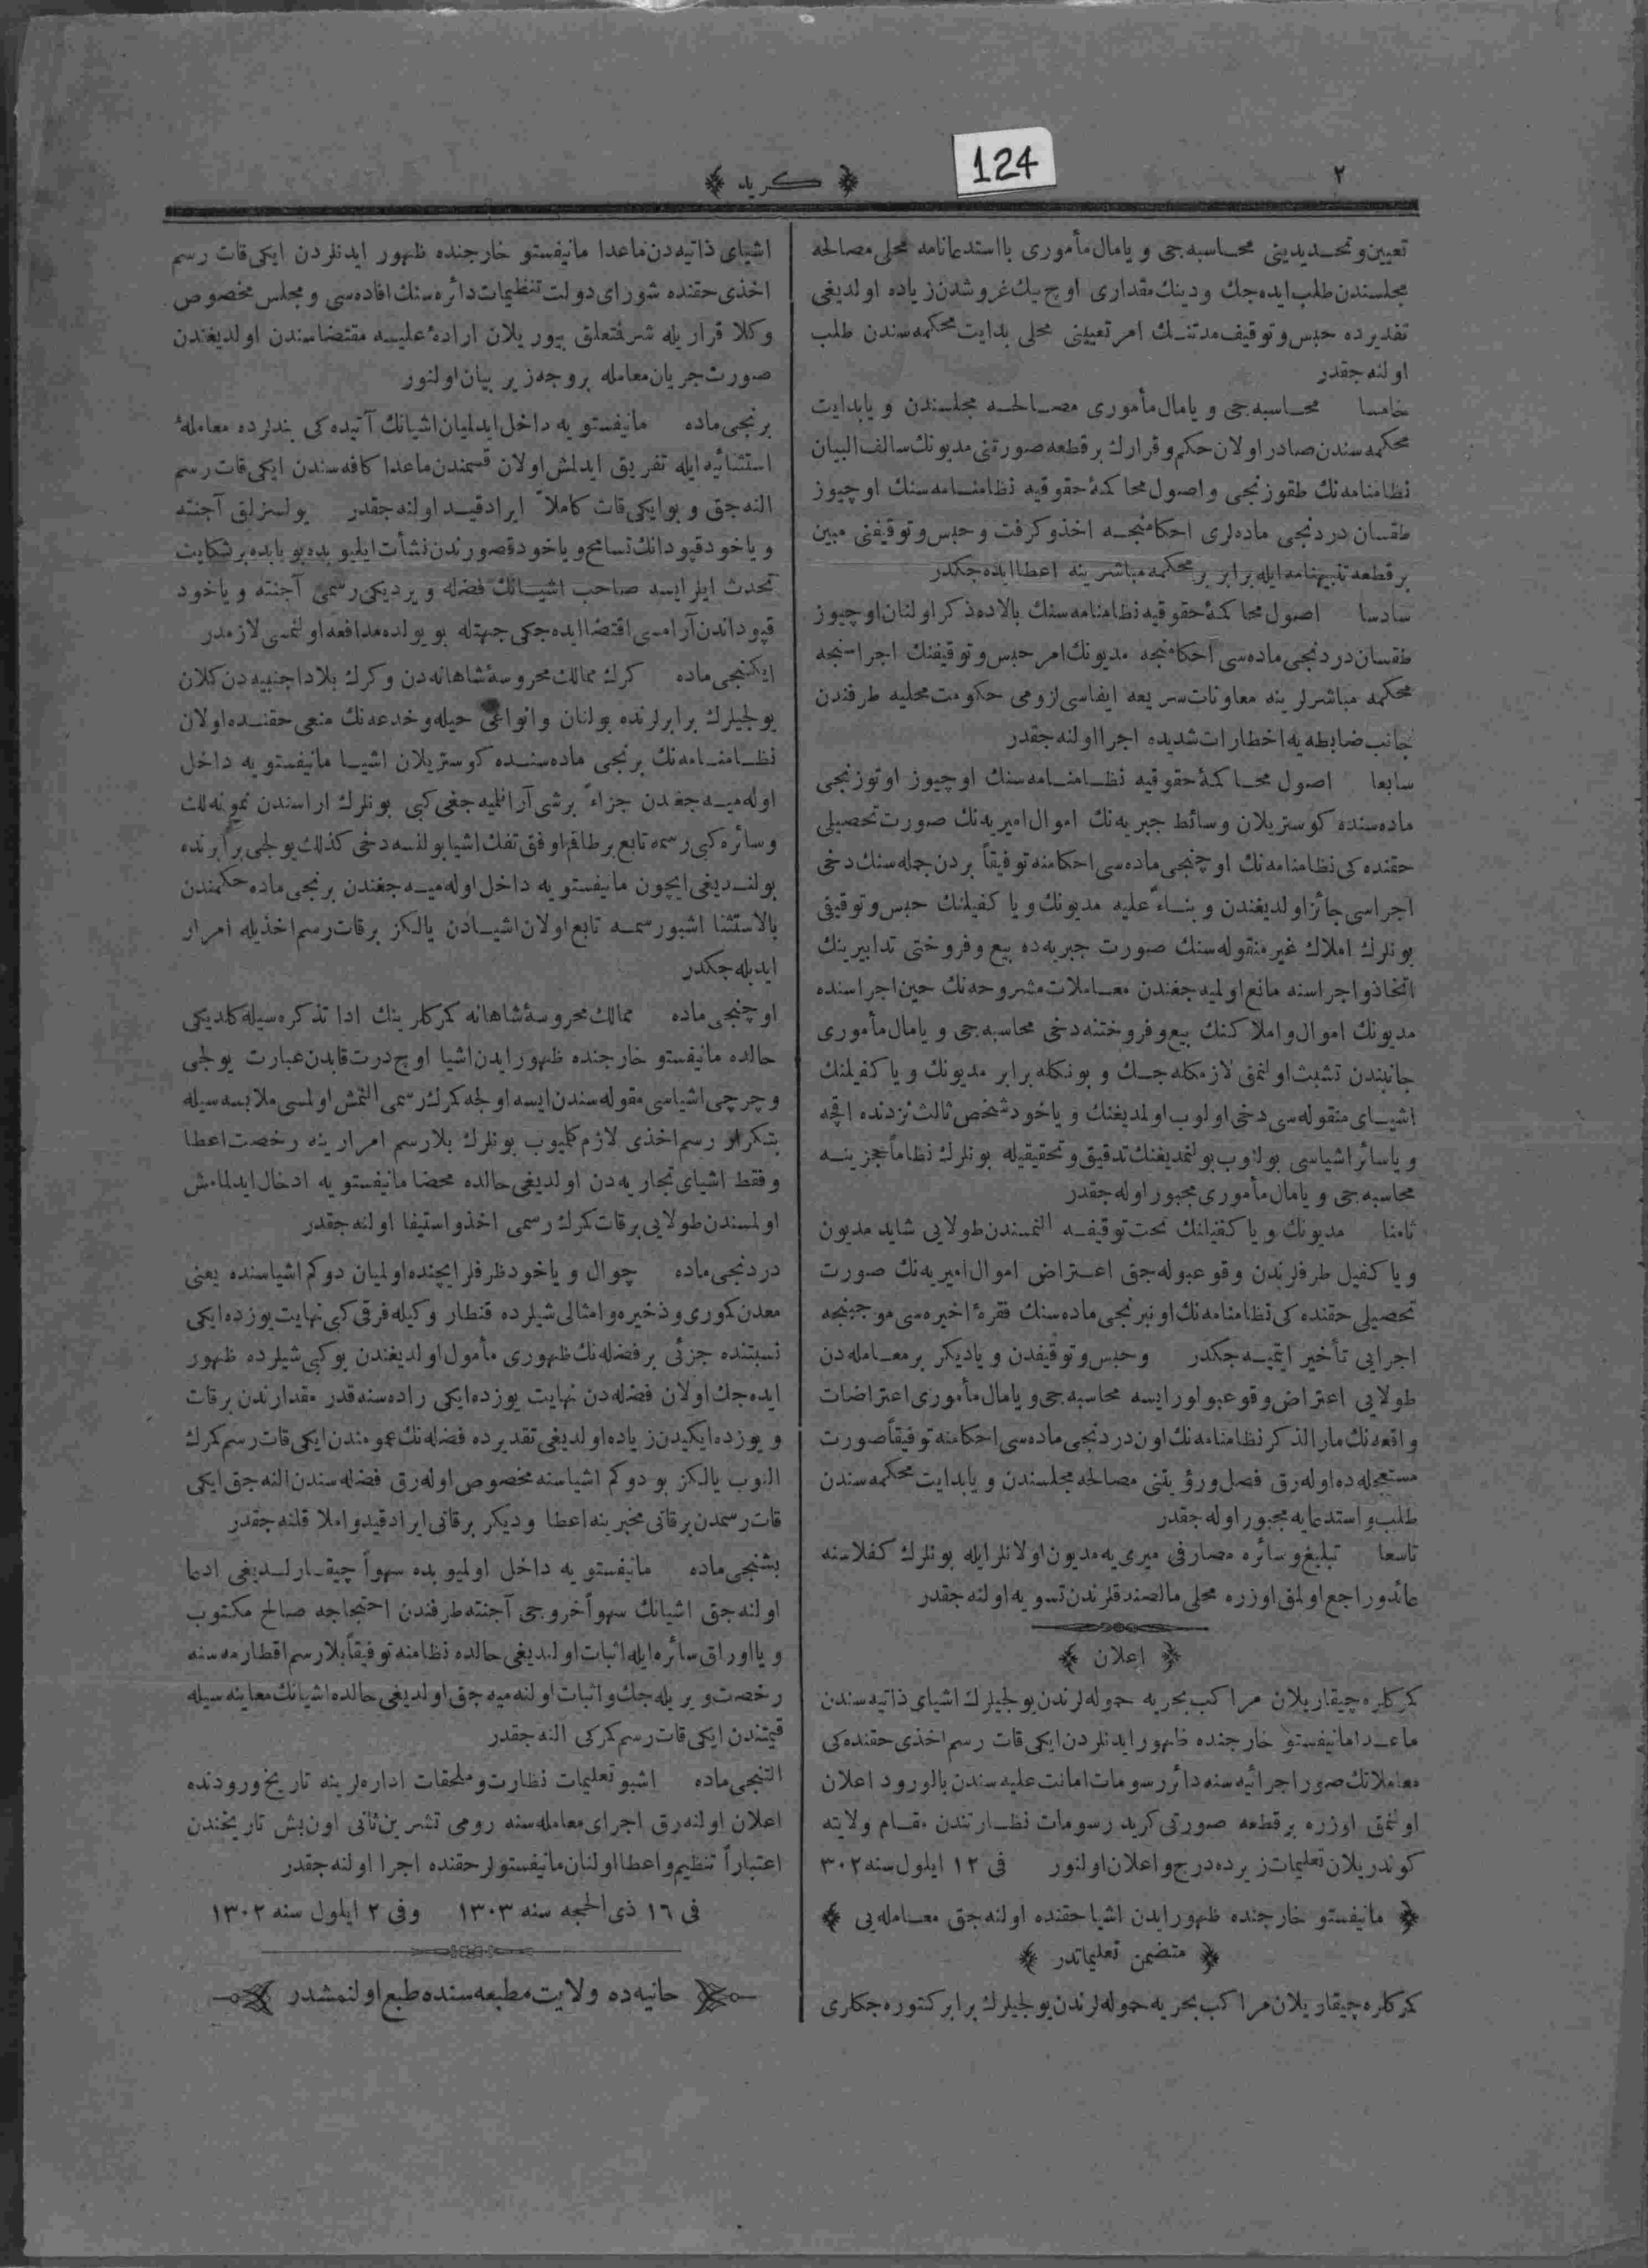 ٢
124
﴿ كريد ﴾
تعيين و تحديديني محاسبه جى و يا مال مأمورى با استدعانامه محلى مصالحه
مجلسندن طلب ايده جك و دينك مقدارى اوچ بيك غروشدن زياده اولديغى
تقديرده حبس و توقيف مدتنك امر تعيينى محلى بدايت محكمه سندن طلب
اولنه جقدر
خامسا محاسبه جى و يا مال مأمورى مصالحه مجلسندن و يا بدايت
محكمه سندن صادر اولان حكم و قرارك بر قطعه صورتنى مديونك سالف البيان
نظامنامه نك طقوزنجى و اصول محاكمۀ حقوقيه نظامنامه سنك اوچيوز
طقسان دردنجى ماده لرى احكامنجه اخذ و كرفت و حبس و توقيفنى مبين
بر قطعه تنبيهنامه ايله برابر بر محكمه مباشرينه اعطا ايده جكدر
سادسا اصول محاكمۀ حقوقيه نظامنامه سنك بالاده ذكر اولنان اوچيوز
طقسان دردنجى ماده سى احكامنجه مديونك امر حبس و توقيفنك اجراسنجه
محكمه مباشرلرينه معاونات سريعه ايفاسى لزومى حكومت محليه طرفندن
جانب ضابطه يه اخطارات شديده اجرا اولنه جقدر
سابعا اصول محاكمۀ حقوقيه نظامنامه سنك اوچيوز اوتوزنجى
ماده سنده كوستريلان وسائط جبريه نك اموال اميريه نك صورت تحصيلى
حقنده كى نظامنامه نك اوچنجى ماده سى احكامنه توفيقاً بردن جمله سنك دخى
اجراسى جائز اولديغندن و بناءً عليه مديونك و يا كفيلنك حبس و توقيفى
بونلرك املاك غير منقوله سنك صورت جبريه ده بيع و فروختى تدابيرينك
اتخاذ و اجراسنه مانع اولميه جغندن معاملات مشروحه نك حين اجراسنده
مديونك اموال و املاكنك بيع و فروختنه دخى محاسبه جى و يا مال مأمورى
جانبندن تشبث اولنمق لازمكله جك و بونكله برابر مديونك و يا كفيلنك
اشياى منقوله سى دخى اولوب اولمديغنك و ياخود شخص ثالث نزدنده اقچه
و يا سائر اشياسى بولنوب بولنمديغنك تدقيق و تحقيقيله بونلرك نظاماً حجزينه
محاسبه جى و يا مال مأمورى مجبور اوله جقدر
ثامنا مديونك و يا كفيلنك تحت توقيفه النمسندن طولايى شايد مديون
و يا كفيل طرفلرندن وقوعبوله جق اعتراض اموال اميريه نك صورت
تحصيلى حقنده كى نظامنامه نك اون برنجى ماده سنك فقرۀ اخيره سى موجبنجه
اجرايى تأخير ايتميه جكدر وحبس و توقيفدن و يا ديكر بر معامله دن
طولايى اعتراض وقوعبولور ايسه محاسبه جى و يا مال مأمورى اعتراضات
واقعه نك مار الذكر نظامنامه نك اون دردنجى ماده سى احكامنه توفيقاً صورت
مستعجله ده اوله رق فصل و رؤيتنى مصالحه مجلسندن و يا بدايت محكمه سندن
طلب و استدعايه مجبور اوله جقدر
تاسعا تبليغ و سائره مصارفى ميرى يه مديون اولانلر ايله بونلرك كفلاسنه
عائد و راجع اولمق اوزره محلى مالصندقلرندن تسويه اولنه جقدر
﴿ اعلان ﴾
كمركلره چيقاريلان مراكب بحريه حموله لرندن يولجيلرك اشياى ذاتيه سندن
ماعدا مانيفستو خارجنده ظهور ايدنلردن ايكى قات رسم اخذى حقنده كى
معاملاتك صور اجرائيه سنه دائر رسومات امانت عليه سندن بالورود اعلان
اولنمق اوزره بر قطعه صورتى كريد رسومات نظارتندن مقام ولايته
كوندريلان تعليمات زيرده درج و اعلان اولنور فى ١٢ ايلول سنه ٣٠٢
﴿ مانيفستو خارجنده ظهور ايدن اشيا حقنده اولنه جق معامله يى ﴾
﴿ متضمن تعليماتدر ﴾
كمركلره چيقاريلان مراكب بحريه حموله لرندن يولجيلرك برابر كتوره جكلرى
اشياى ذاتيه دن ماعدا مانيفستو خارجنده ظهور ايدنلردن ايكى قات رسم
اخذى حقنده شوراى دولت تنظيمات دائره سنك افاده سى و مجلس مخصوص
وكلا قراريله شرفتعلق بيوريلان ارادۀ عليه مقتضاسندن اولديغندن
صورت جريان معامله بر وجه زير بيان اولنور
برنجى ماده مانيفستويه داخل ايدلميان اشيانك آتيده كى بندلرده معاملۀ
استثنائيه ايله تفريق ايدلمش اولان قسمندن ماعدا كافه سندن ايكى قات رسم
النه جق و بو ايكى قات كاملاً ايراد قيد اولنه جقدر بو لسزلق آجنته
و ياخود قپودانك تسامح و ياخود قصورندن نشأت ايليوبده بو بابده بر شكايت
تحدث ايلر ايسه صاحب اشيانك فضله ويرديكى رسمى آجنته و ياخود
قپوداندن آرامسى اقتضا ايده جكى جهتله بو يولده مدافعه اولنمسى لازمدر
ايكنجى ماده كرك ممالك محروسۀ شاهانه دن و كرك بلاد اجنبيه دن كلان
يولجيلرك برابرلرنده بولنان و انواعى حيله و خدعه نك منعى حقنده اولان
نظامنامه نك برنجى ماده سنده كوستريلان اشيا مانيفستويه داخل
اوله ميه جغندن جزاءً بر شى آرانلميه جغى كبى بونلرك اراسندن نمونه لك
و سائره كبى رسمه تابع بر طاقم اوفق تفك اشيا بولنسه دخى كذلك يولجى برابرنده
بولنديغى ايچون مانيفستويه داخل اوله ميه جغندن برنجى ماده حكمندن
بالاستثنا اشبو رسمه تابع اولان اشيادن يالكز بر قات رسم اخذيله امرار
ايديله جكدر
اوچنجى ماده ممالك محروسۀ شاهانه كمركلرينك ادا تذكره سيله كلديكى
حالده مانيفستو خارجنده ظهور ايدن اشيا اوچ درت قابدن عبارت يولجى
و چرچى اشياسى مقوله سندن ايسه اولجه كمرك رسمى النمش اولمسى ملابسه سيله
بتكرار رسم اخذى لازم كلميوب بونلرك بلا رسم امرارينه رخصت اعطا
و فقط اشياى تجاريه دن اولديغى حالده محضا مانيفستويه ادخال ايدلمامش
اولمسندن طولايى بر قات كمرك رسمى اخذ و استيفا اولنه جقدر
دردنجى ماده چوال و ياخود ظرفلر ايچنده اولميان دوكم اشياسنده يعنى
معدن كمورى و ذخيره و امثالى شيلرده قنطار و كيله فرقى كبى نهايت يوزده ايكى
نسبتنده جزئى بر فضله نك ظهورى مأمول اولديغندن بو كبى شيلرده ظهور
ايده جك اولان فضله دن نهايت يوزده ايكى راده سنه قدر مقدارندن بر قات
و يوزده ايكيدن زياده اولديغى تقديرده فضله نك عمومندن ايكى قات رسم كمرك
النوب يالكز بو دوكم اشياسنه مخصوص اوله رق فضله سندن النه جق ايكى
قات رسمدن بر قاتى مخبرينه اعطا و ديكر بر قاتى ايراد قيد و املا قلنه جقدر
بشنجى ماده مانيفستويه داخل اولميوبده سهواً چيقارلديغى ادعا
اولنه جق اشيانك سهواً خروجى آجنته طرفندن احتجاجه صالح مكتوب
و يا اوراق سائره ايله اثبات اولنديغى حالده نظامنه توفيقاً بلا رسم اقطارمه سنه
رخصت ويريله جك و اثبات اولنه ميه جق اولديغى حالده اشيانك معاينه سيله
قيمتندن ايكى قات رسم كمركى النه جقدر
التنجى ماده اشبو تعليمات نظارت و ملحقات اداره لرينه تاريخ ورودنده
اعلان اولنه رق اجراى معامله سنه رومى تشرين ثانى اون بش تاريخندن
اعتباراً تنظيم و اعطا اولنان مانيفستولر حقنده اجرا اولنه جقدر
فى ١٦ ذى الحجه سنه ١٣٠٣ وفى ٢ ايلول سنه ١٣٠٢
حانيه ده ولايت مطبعه سنده طبع اولنمشدر